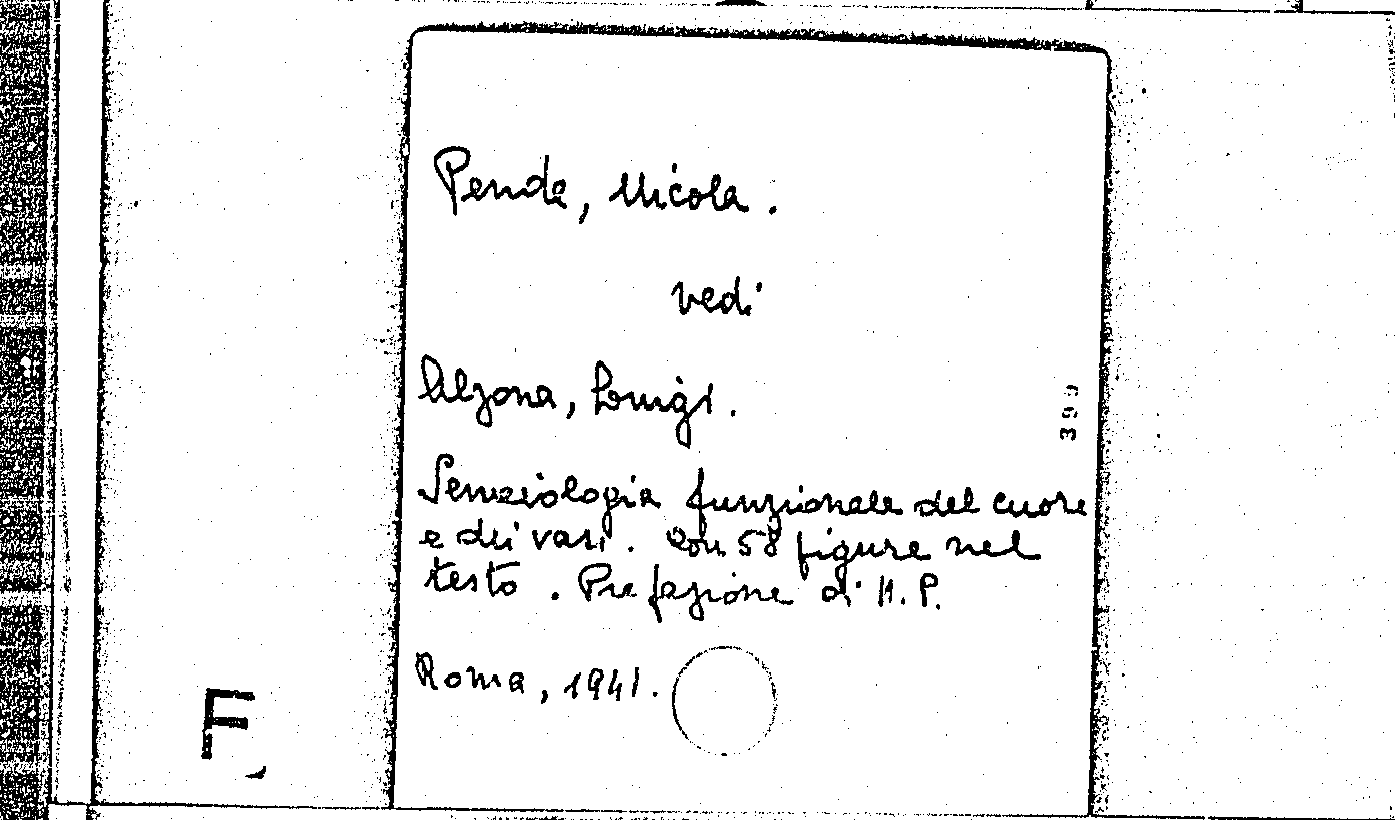 Pende, Nicola.
vedi
Alzona, Luigi.
399
Semeiologia funzionale del cuore
e dei vasi. Con 58 figure nel
testo. Prefazione di N. P.
Roma, 1941.
F